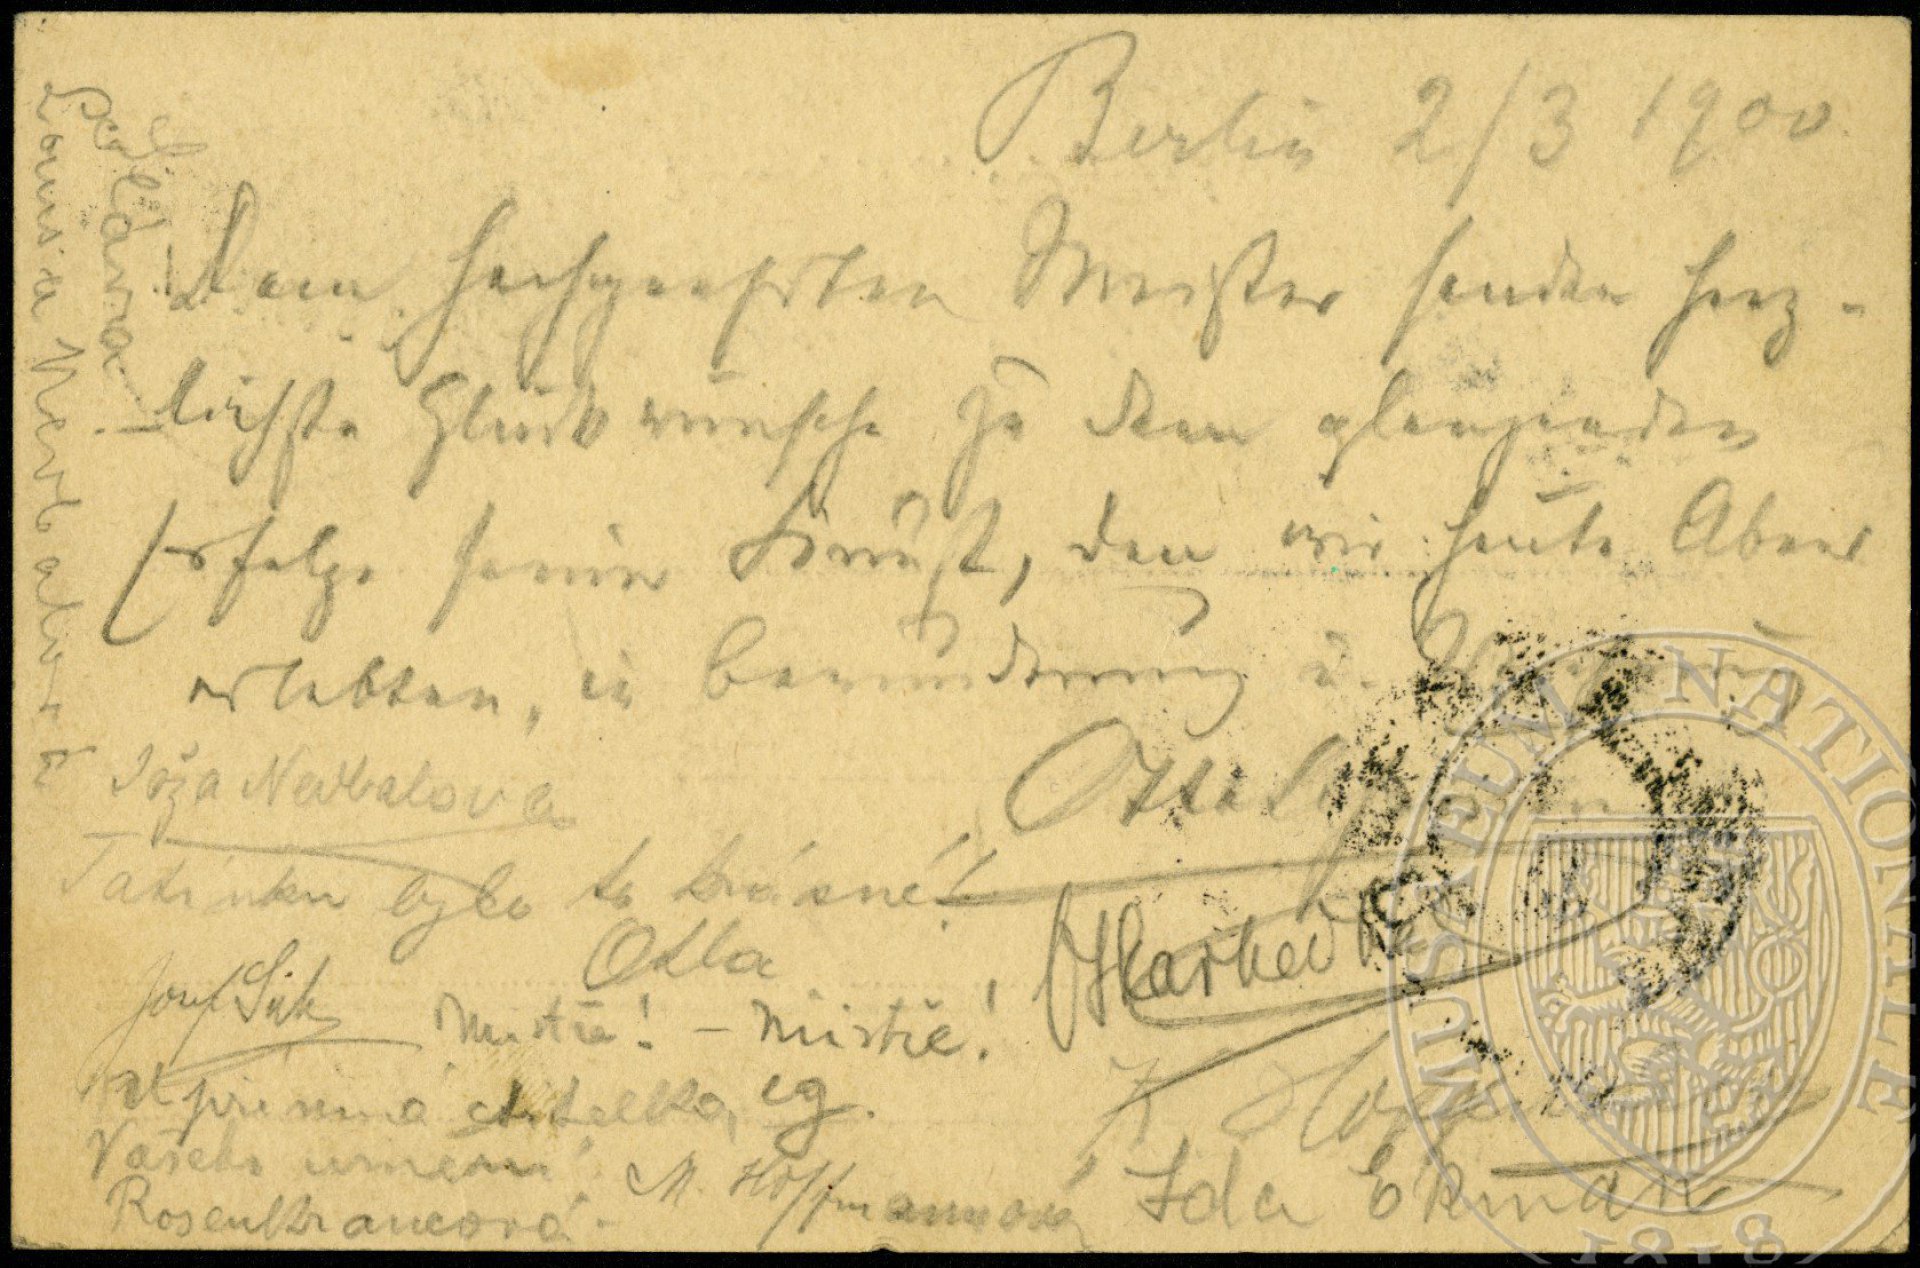 Berlin 2/3 1900
Dem hochgeehrten Meister senden herz-
lichste Glückwünsche zu dem glänzenden
Erfolge seiner Kunst, den wir heute Abend
erlebten, in Bewunderung u.
Joža Nedbalová
Tatínku bylo to krásné!
Otla
Josef Suk
Mistře! – Mistře!
Upřímná ctitelka
Vašeho umění
Rosenkrancová
M. Hoffmannová
K. Hoffmann
Ida Ekman
Sláva!
Louisia Nedbalová
MUSAEUM NATIONALE
1818